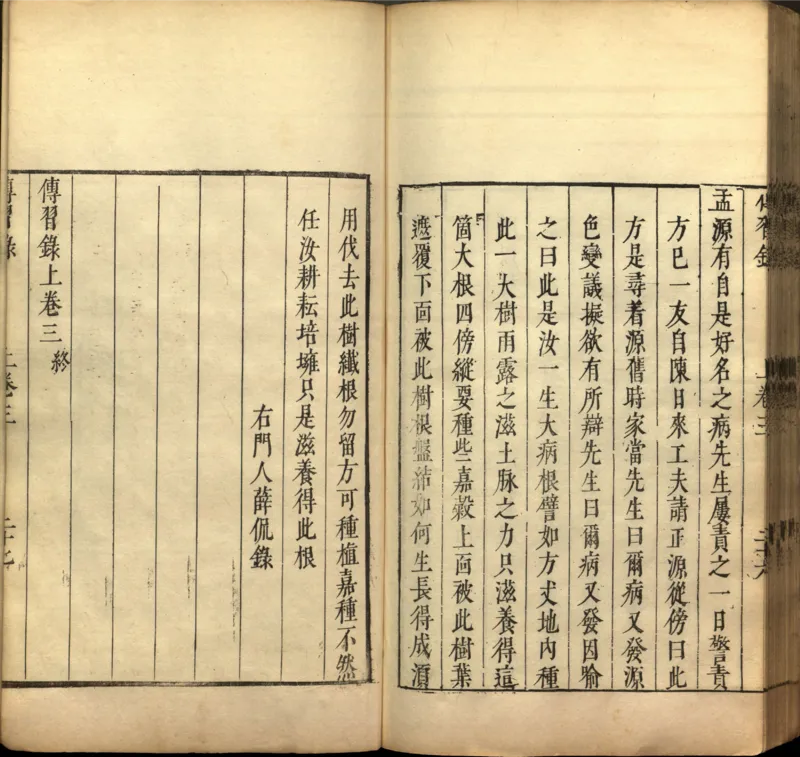 傳習錄 上卷三 二十六
孟源有自是好名之病先生屢責之一日警責
方已一友自陳日來工夫請正源從傍曰此
方是尋着源舊時家當先生曰爾病又發源
色變議擬欲有所辯先生曰爾病又發因喻
之曰此是汝一生大病根譬如方丈地內種
此一大樹雨露之滋土脉之力只滋養得這
箇大根四傍縱要種些嘉穀上面被此樹葉
遮覆下面被此樹根盤結如何生長得成湏
用伐去此樹纖根勿留方可種植嘉種不然
任汝耕耘培擁只是滋養得此根
右門人薛侃錄
傳習錄上卷三 終
傳習錄 上卷三 二十七